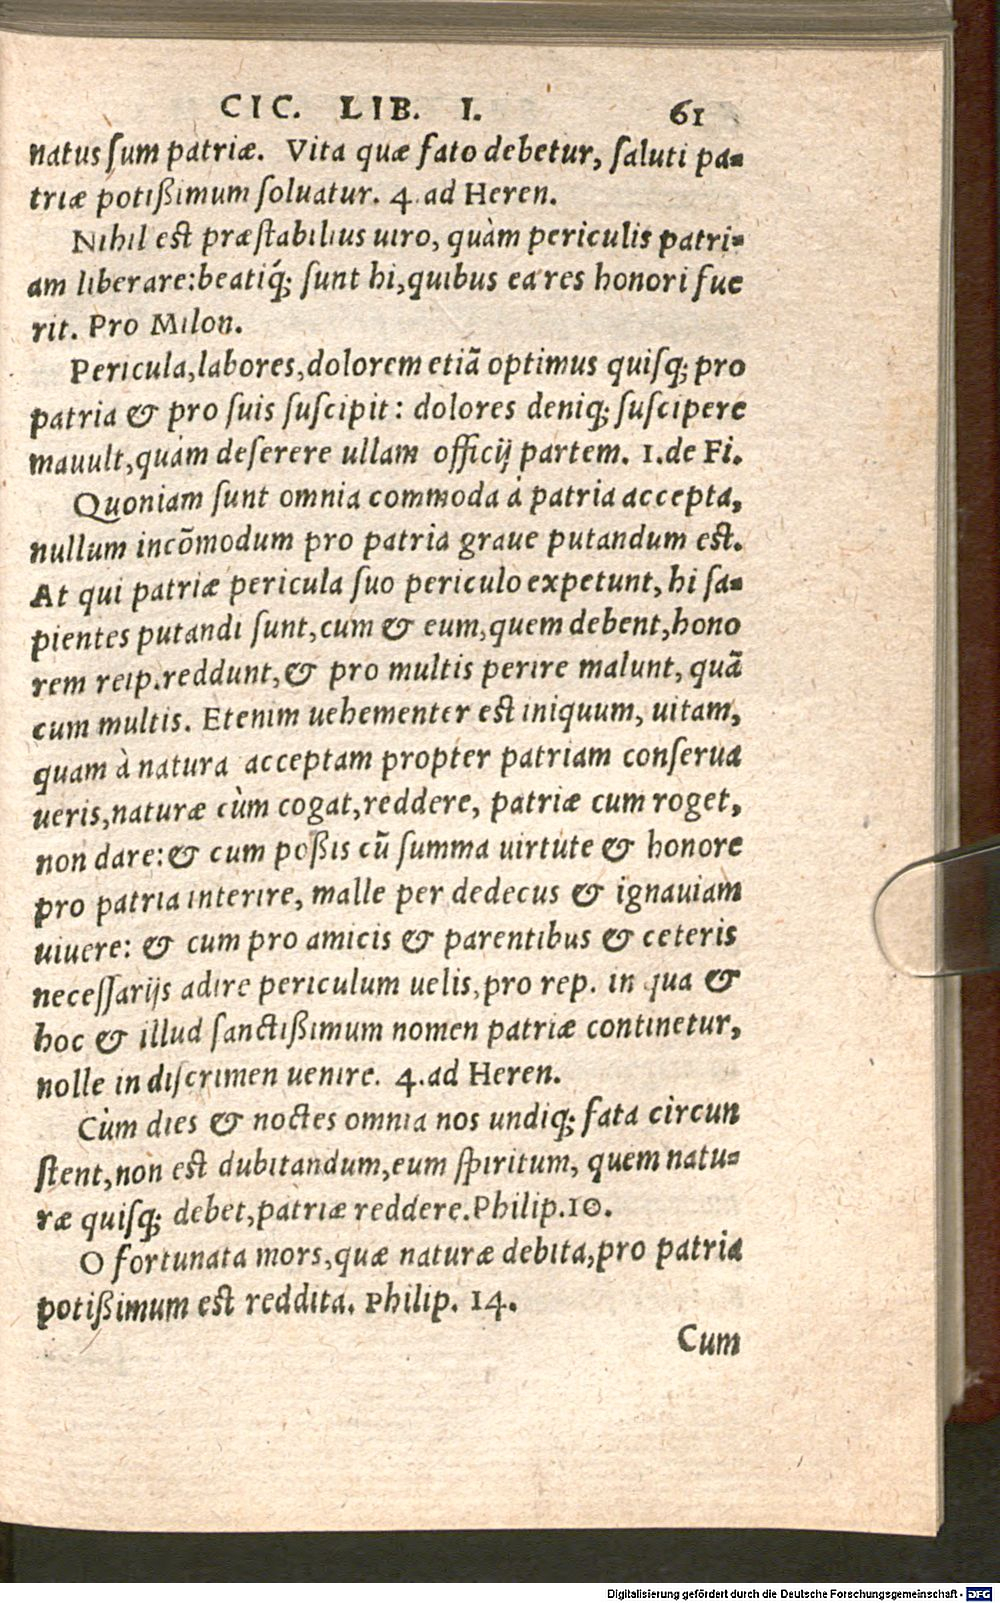 CIC. LIB. I. 61
natus ſum patriæ. Vita quæ fato debetur, ſaluti pa-
triæ potißimum ſoluatur. 4. ad Heren.
Nihil eſt præſtabilius uiro, quàm periculis patri-
am liberare: beatiq́; ſunt hi, quibus ea res honori fue
rit. Pro Milon.
Pericula, labores, dolorem etiã optimus quiſq; pro
patria & pro ſuis ſuſcipit: dolores deniq; ſuſcipere
mauult, quàm deſerere ullam officij partem. 1. de Fi.
Quoniam ſunt omnia commoda à patria accepta,
nullum incõmodum pro patria graue putandum eſt.
At qui patriæ pericula ſuo periculo expetunt, hi ſa-
pientes putandi ſunt, cum & eum, quem debent, hono
rem reip. reddunt, & pro multis perire malunt, quã
cum multis. Etenim uehementer eſt iniquum, uitam,
quam à natura acceptam propter patriam conſerua
ueris, naturæ cùm cogat, reddere, patriæ cum roget,
non dare: & cum poßis cũ ſumma uirtute & honore
pro patria interire, malle per dedecus & ignauiam
uiuere: & cum pro amicis & parentibus & ceteris
neceſſarijs adire periculum uelis, pro rep. in qua &
hoc & illud ſanctißimum nomen patriæ continetur,
nolle in diſcrimen uenire. 4. ad Heren.
Cùm dies & noctes omnia nos undiq; fata circun
ſtent, non eſt dubitandum, eum ſpiritum, quem natu-
ræ quiſq; debet, patriæ reddere. Philip. 10.
O fortunata mors, quæ naturæ debita, pro patria
potißimum eſt reddita. Philip. 14.
Cum
Digitalisierung gefördert durch die Deutsche Forschungsgemeinschaft - DFG